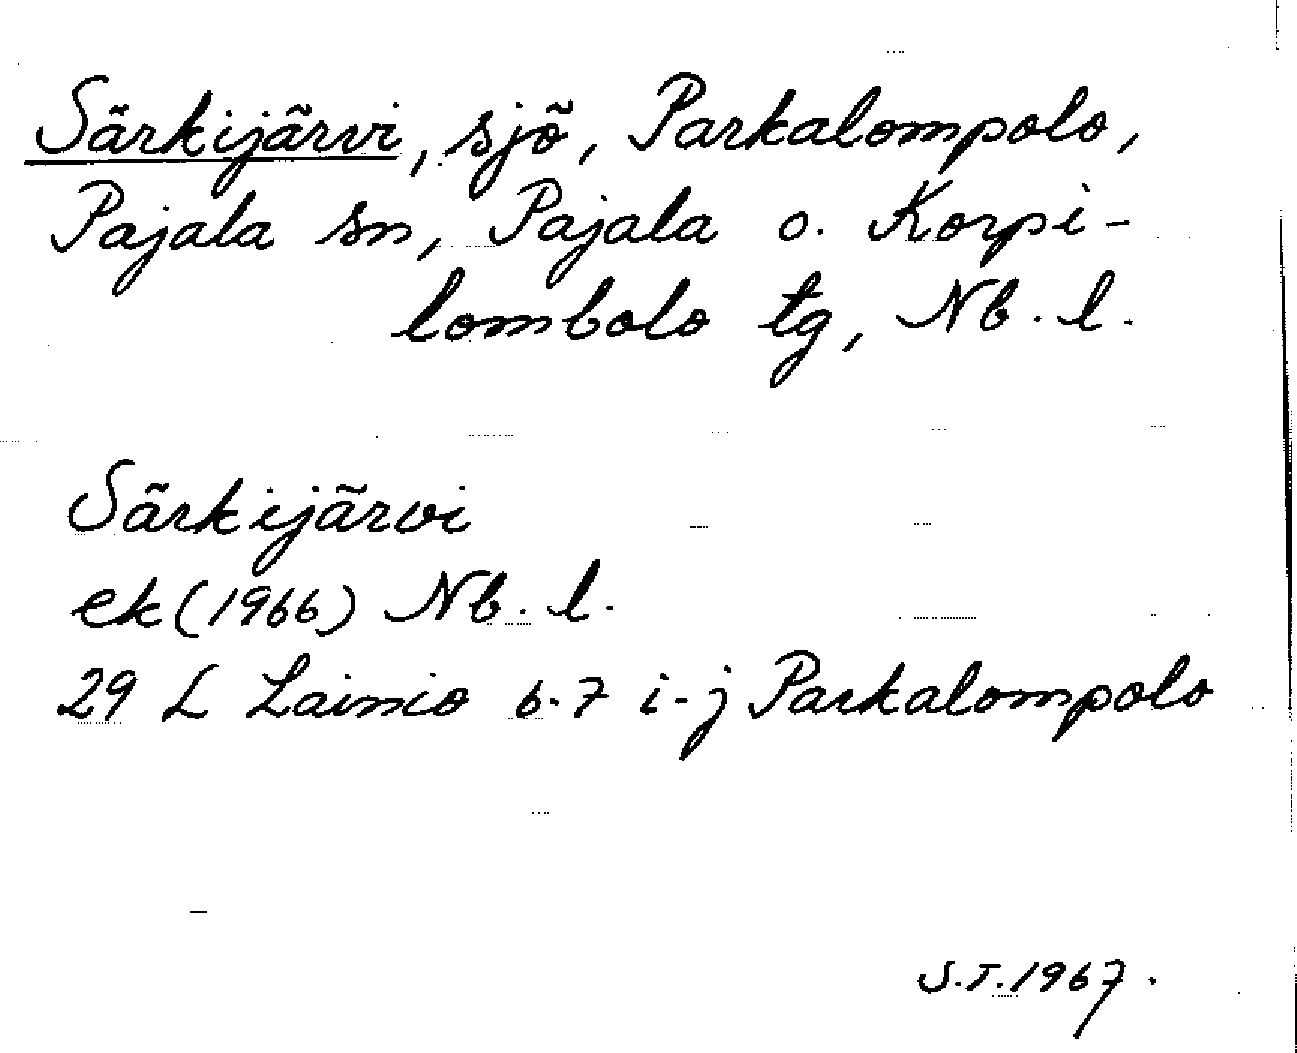 Särkijärvi, sjö, Parkalompolo,
Pajala sn, Pajala o. Korpi-
lombolo tg, Nb. l.
Särkijärvi
ek (1966) Nb. l.
29 L Lainio 6-7 i-j Parkalompolo
S.T. 1967.